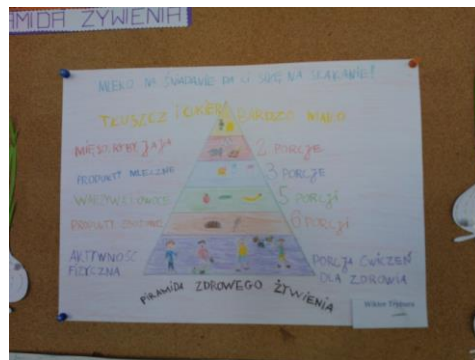 AMIDA ŻYWIENIA
MLEKO NA ŚNIADANIE DA CI SIŁĘ NA SKAKANIE!
TŁUSZCZ I CUKIER BARDZO MAŁO
MIĘSO, RYBY, JAJA 2 PORCJE
PRODUKTY MLECZNE 3 PORCJE
WARZYWA I OWOCE 5 PORCJI
PRODUKTY ZBOŻOWE 6 PORCJI
AKTYWNOŚĆ FIZYCZNA
PORCJA ĆWICZEŃ DLA ZDROWIA
PIRAMIDA ZDROWEGO ŻYWIENIA
Wiktor